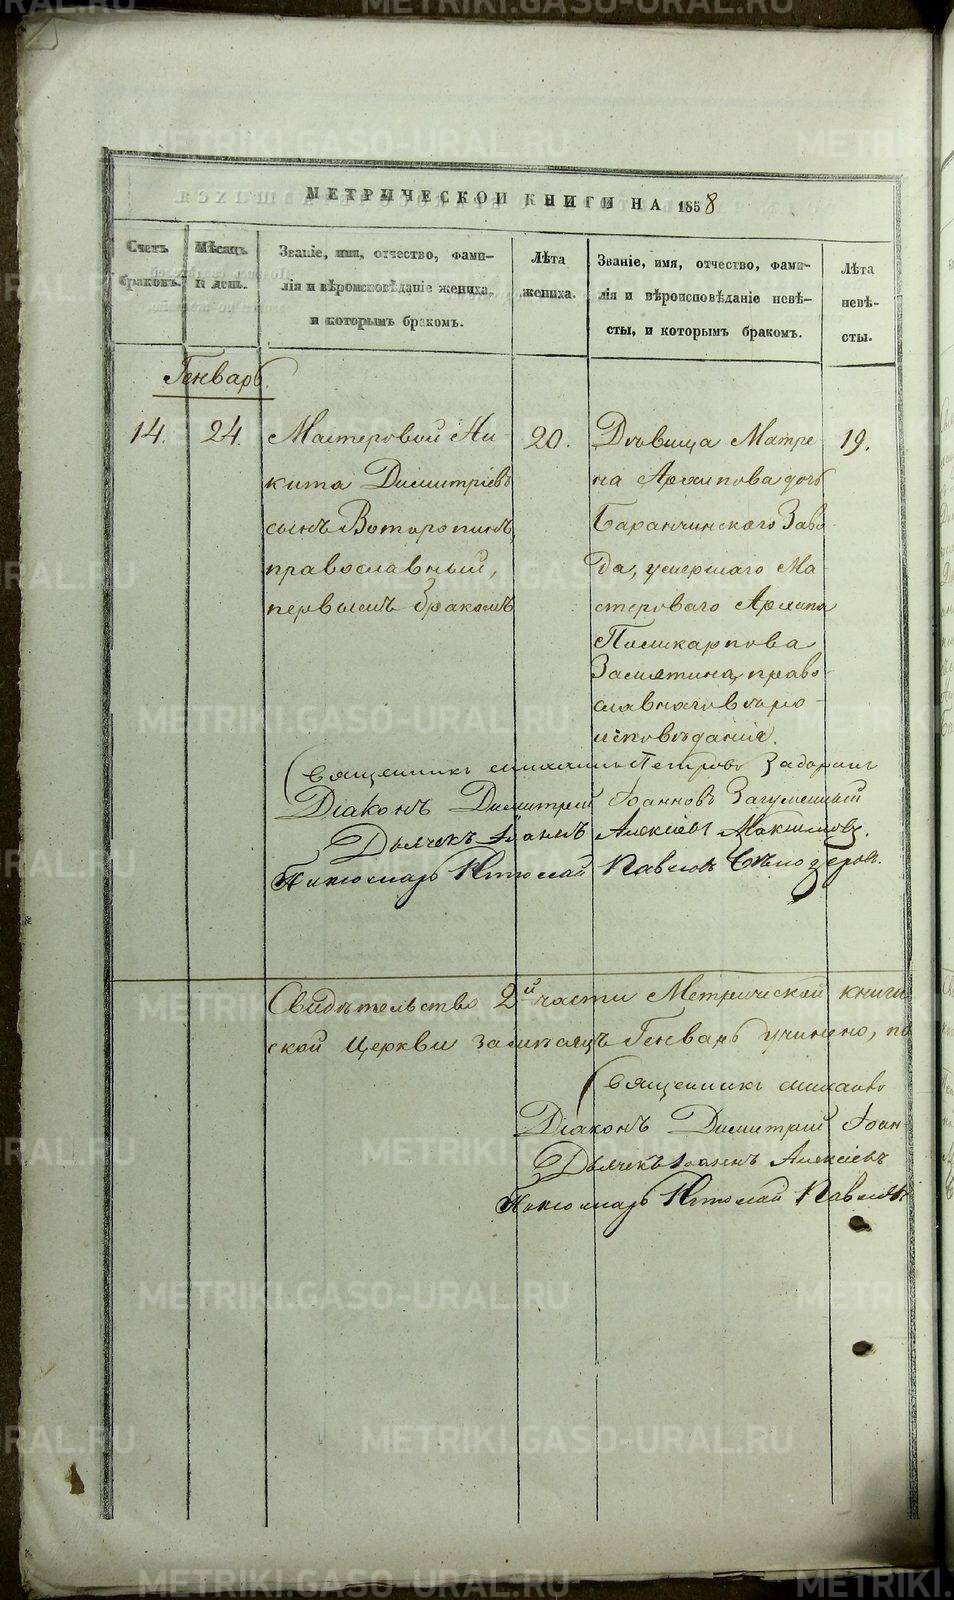 МЕТРИЧЕСКОЙ КНИГИ НА 1858
Счетъ браковъ.
Мѣсяцъ и день.
Званіе, имя, отчество, фами-
лія и вѣроисповѣданіе жениха,
и которымъ бракомъ.
Лѣта
жениха.
Званіе, имя, отчество, фами-
лія и вѣроисповѣданіе невѣ-
сты, и которымъ бракомъ.
Лѣта
невѣ-
сты.
Генварь.
14.
24.
Мастеровой Ни-
кита Димитріевъ
сынъ Воторопинъ,
православный,
первымъ бракомъ
20.
Дѣвица Матре
на Архипова дочь
Баранчинскаго Заво-
да, умершаго Ма-
стероваго Архипа
Поликарпова
Замятина, право-
славнаго вѣро-
исповѣданія.
19.
Священникъ Михаилъ Петровъ Задоринъ
Діаконъ Димитрий Іоанновъ Загуменный
Дьячекъ Іоаннъ Алексіевъ Максимовъ.
Пономарь Николай Павловъ Бѣлозеровъ.
Свидѣтельство 2й части Метрической книги
ской Церкви за мѣсяцъ Генварь учинено, по
Священникъ Михаилъ
Діаконъ Димитрий Іоан-
Дьячекъ Іоаннъ Алексіевъ
Пономарь Николай Павловъ
METRIKI.GASO-URAL.RU